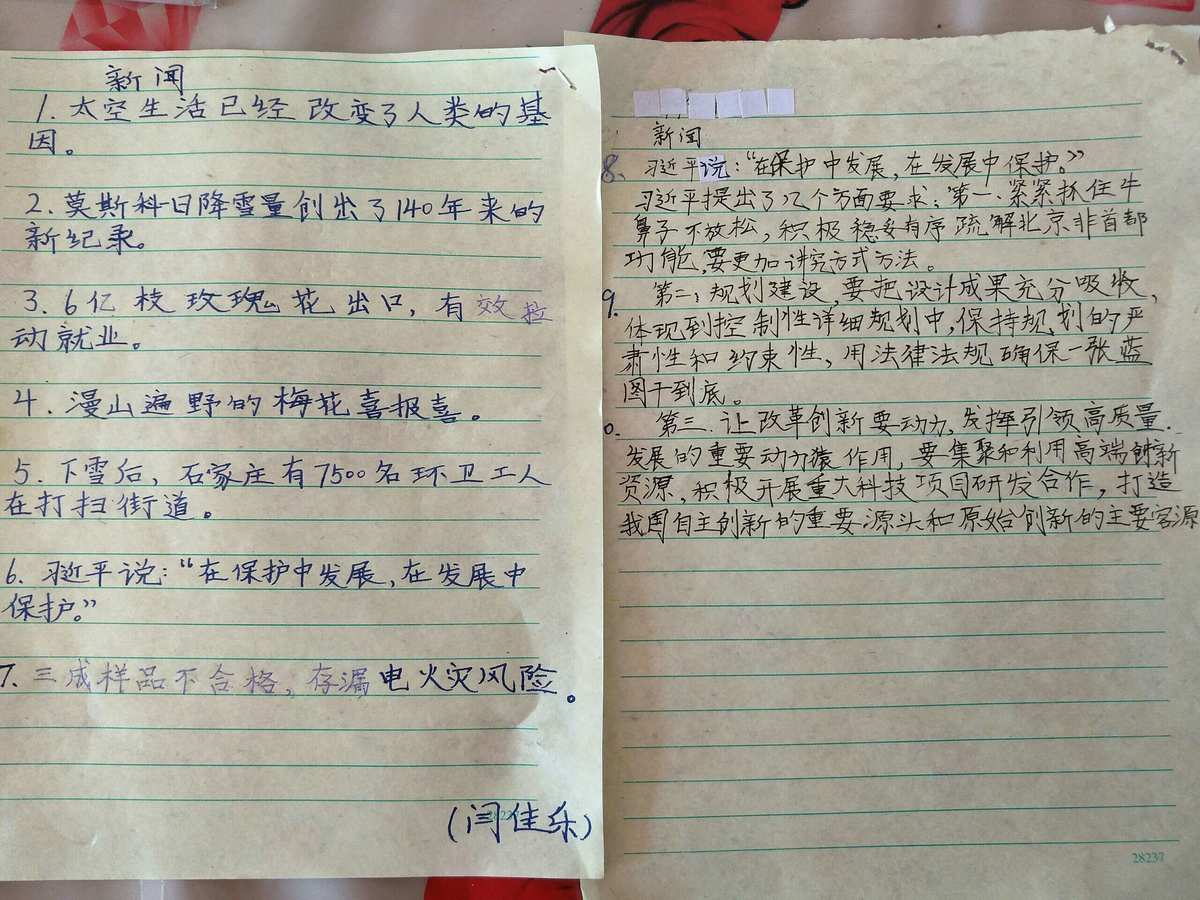 新闻
1. 太空生活已经改变了人类的基
因。
2. 莫斯科日降雪量创出了140年来的
新纪录。
3. 6亿枝玫瑰花出口，有效拉
动就业。
4. 漫山遍野的梅花喜报喜。
5. 下雪后，石家庄有7500名环卫工人
在打扫街道。
6. 习近平说：“在保护中发展，在发展中
保护。”
7. 三成样品不合格，存漏电火灾风险。
(闫佳乐)
新闻
8. 习近平说：“在保护中发展，在发展中保护。”
习近平提出了几个方面要求：第一、紧紧抓住牛
鼻子不放松，积极稳妥有序疏解北京非首都
功能，要更加讲究方式方法。
9. 第二：规划建设，要把设计成果充分吸收，
体现到控制性详细规划中，保持规划的严
肃性和约束性，用法律法规确保一张蓝
图干到底。
0. 第三、让改革创新要动力，发挥引领高质量
发展的重要动力作用，要集聚和利用高端创新
资源，积极开展重大科技项目研发合作，打造
我国自主创新的重要源头和原始创新的主要客源
28237